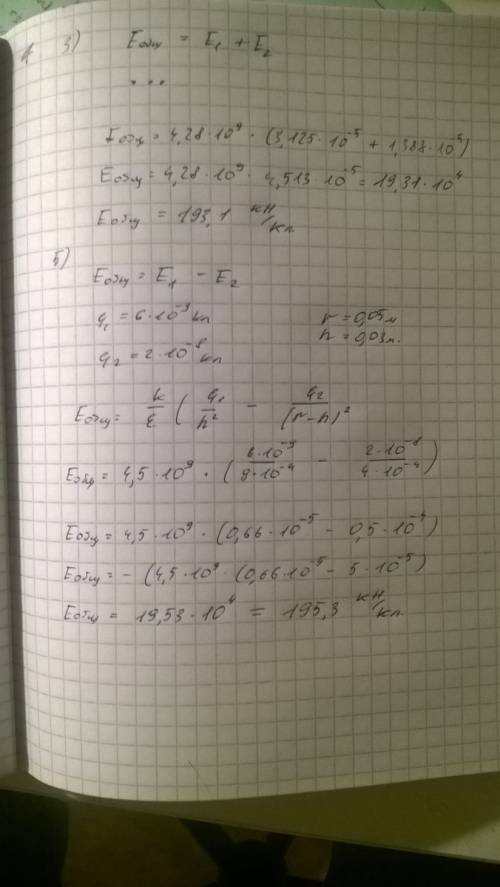 1 3) Eобщ = E₁ + E₂
...
Eобщ = 4,28·10⁹ · (3,125·10⁻⁵ + 1,388·10⁻⁵)
Eобщ = 4,28·10⁹ · 4,513·10⁻⁵ = 19,31·10⁴
Eобщ = 193,1 кН/кл
5)
Eобщ = E₁ − E₂
q₁ = 6·10⁻⁹ кл r = 0,05 м
q₂ = 2·10⁻⁸ кл h = 0,03 м.
Eобщ = k/ε ( q₁/h² − q₂/(r−h)²
Eобщ = 4,5·10⁹ · ( 6·10⁻⁹/9·10⁻⁴ − 2·10⁻⁸/4·10⁻⁴ )
Eобщ = 4,5·10⁹ · (0,66·10⁻⁵ − 0,5·10⁻⁴)
Eобщ = − (4,5·10⁹ · (0,66·10⁻⁵ − 5·10⁻⁵)
Eобщ = 19,53·10⁴ = 195,3 кН/кл